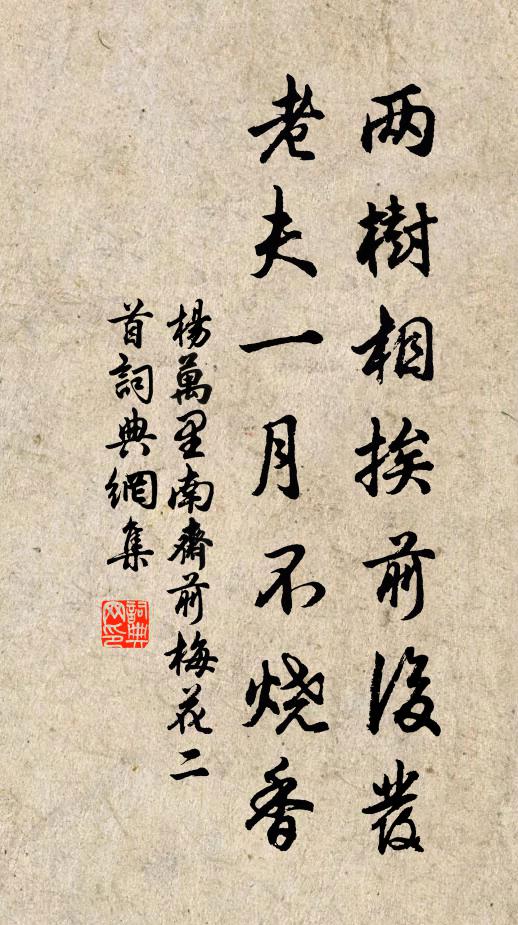 两樹相挨前後發
老夫一月不烧香
楊萬里南齋前梅花二
首詞典網集
詞典
网印